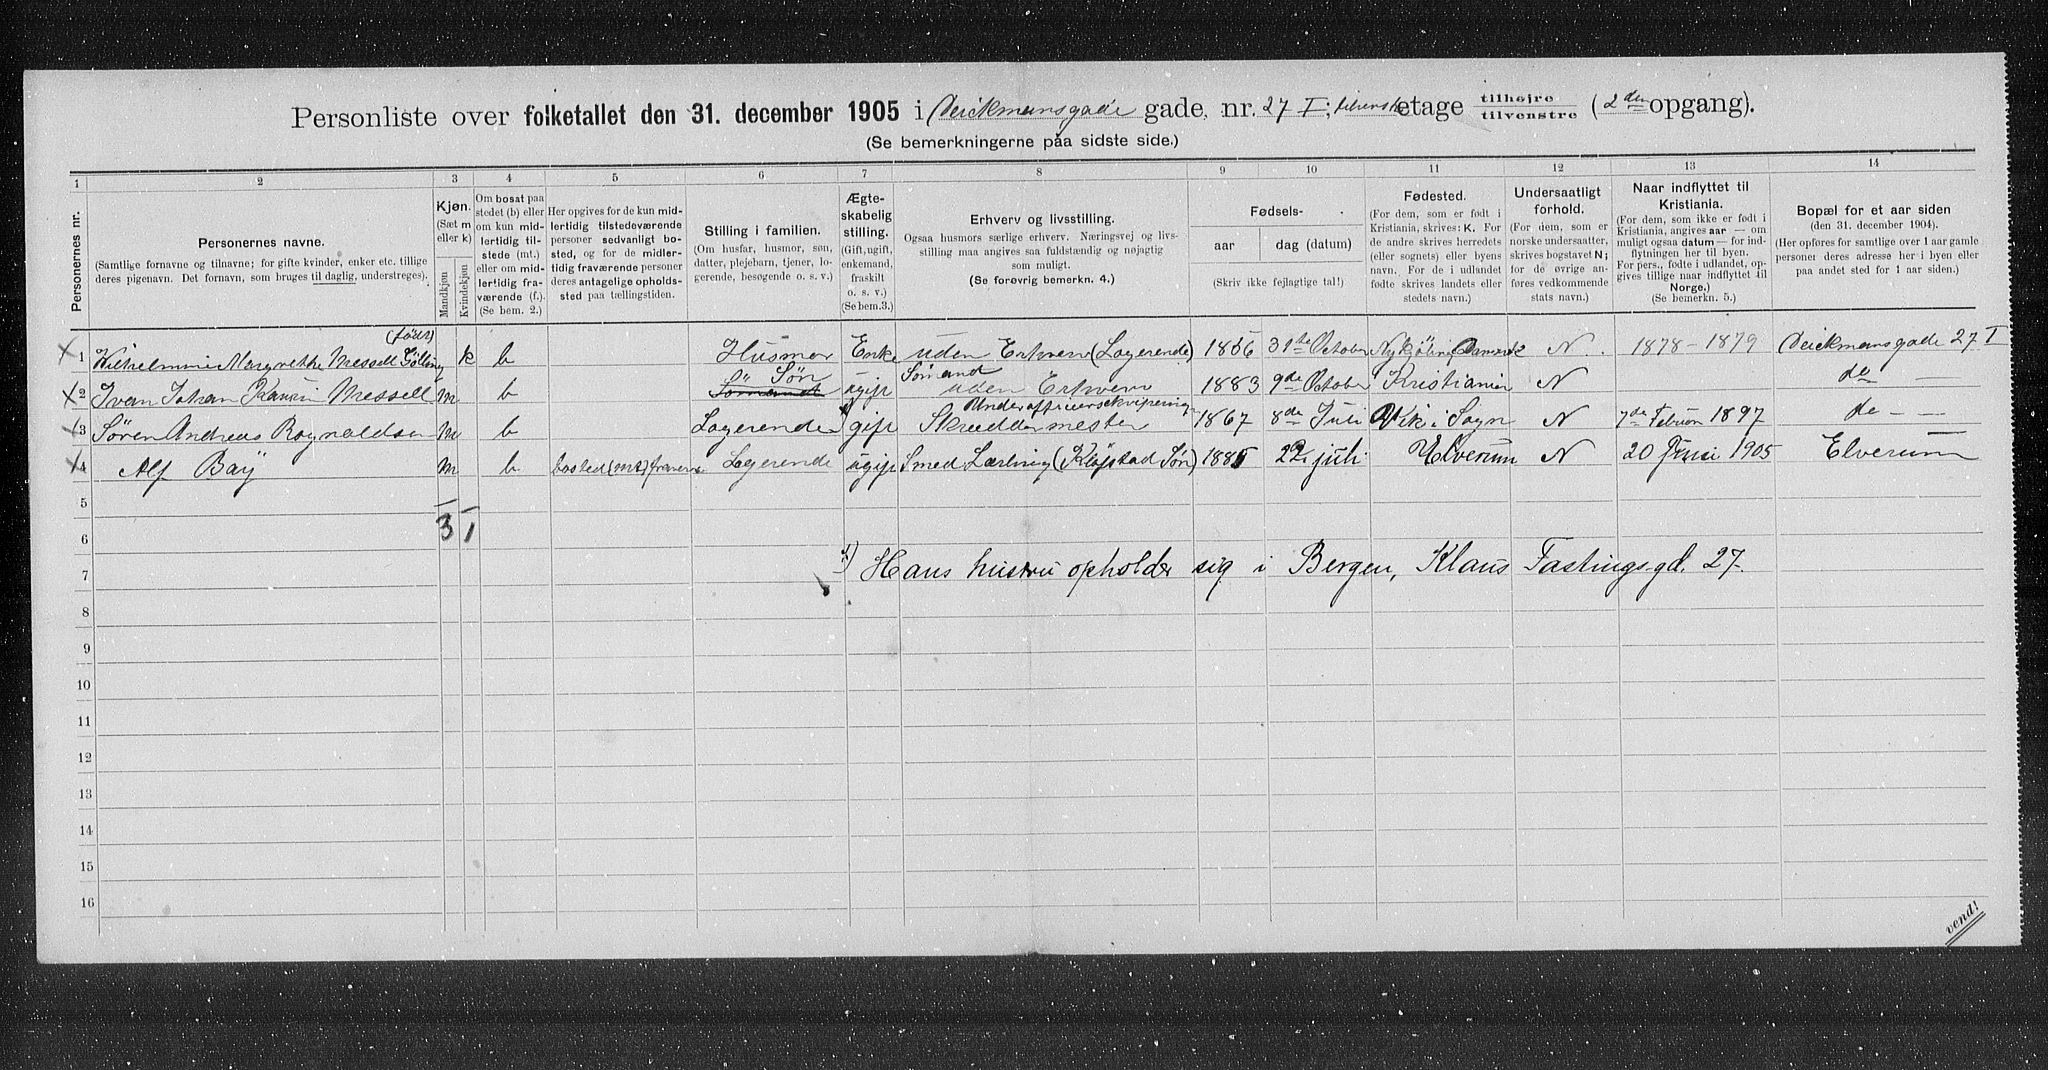 Personliste over folketallet den 31. december 1905 i Deichmansgade gade, nr. 27 I; tilvenstre etage tilhøjre / tilvenstre (2den opgang).
(Se bemerkningerne paa sidste side.)
1 2 3 4 5 6 7 8 9 10 11 12 13 14
Personernes nr.
Personernes navne.
(Samtlige fornavne og tilnavne; for gifte kvinder, enker etc. tillige
deres pigenavn. Det fornavn, som bruges til daglig, understreges).
Kjøn.
(Sæt m
eller k)
Mandkjøn
Kvindekjøn
Om bosat paa
stedet (b) eller
om kun mid-
lertidig til-
stede (mt.)
eller om mid-
lertidig fra-
værende (f.).
(Se bem. 2.)
Her opgives for de kun mid-
lertidig tilstedeværende
personer sedvanligt bo-
sted, og for de midler-
tidig fraværende personer
deres antagelige opholds-
sted paa tællingstiden.
Stilling i familien.
(Om husfar, husmor, søn,
datter, plejebarn, tjener, lo-
gerende, besøgende o. s. v.)
Ægte-
skabelig
stilling.
(Gift, ugift,
enkemand,
fraskilt
o. s. v.)
(Se bem.3.)
Erhverv og livsstilling.
Ogsaa husmors særlige erhverv. Næringsvej og livs-
stilling maa angives saa fuldstændig og nøjagtig
som muligt.
(Se forøvrig bemerkn. 4.)
Fødsels-
aar
dag (datum)
(Skriv ikke fejlagtige tal!)
Fødested.
(For dem, som er født i
Kristiania, skrives: K. For
de andre skrives herredets
(eller sognets) eller byens
navn. For de i udlandet
fødte skrives landets eller
stedets navn.)
Undersaatligt
forhold.
(For dem, som er
norske undersaatter,
skrives bogstavet N;
for de øvrige an-
føres vedkommende
stats navn.)
Naar indflyttet til
Kristiania.
(For dem, som ikke er født i
Kristiania, angives aar — om
muligt ogsaa datum — for ind-
flytningen her til byen.
For pers., fødte i udlandet, op-
gives tillige naar indflyttet til
Norge.)
(Se bemerkn. 5.)
Bopæl for et aar siden
(den 31. december 1904).
(Her opføres for samtlige over 1 aar gamle
personer deres adresse her i byen eller
paa andet sted for 1 aar siden.)
(født)
1 Wilhelmine Margrethe Messell k b Husmor Enke uden Erhverv (Logerende) 1856 31te October Nykjöbing Danmark N. 1878 – 1879 Deichmansgade 27 I
Søn Sømand
2 Ivan Johan Messell m b Sømand ugift uden Erhverv 1883 9de October Kristiania N do —
Underofficersekvipering
3 Søren Andreas Ragnaldsen m b Logerende gift Skræddermester 1867 8de Juli Vik i Sogn N 7de Februar 1897 do — —
4 Alf Bay m b bosted (mt) Logerende ugift Smed Lærling 1885 22 juli Elverum N 20 Juni 1905 Elverum
5
3 1
6
1) Hans hustru opholder sig i Bergen, Klaus Fastingsgd. 27.
7
8
9
10
11
12
13
14
15
16
vend!